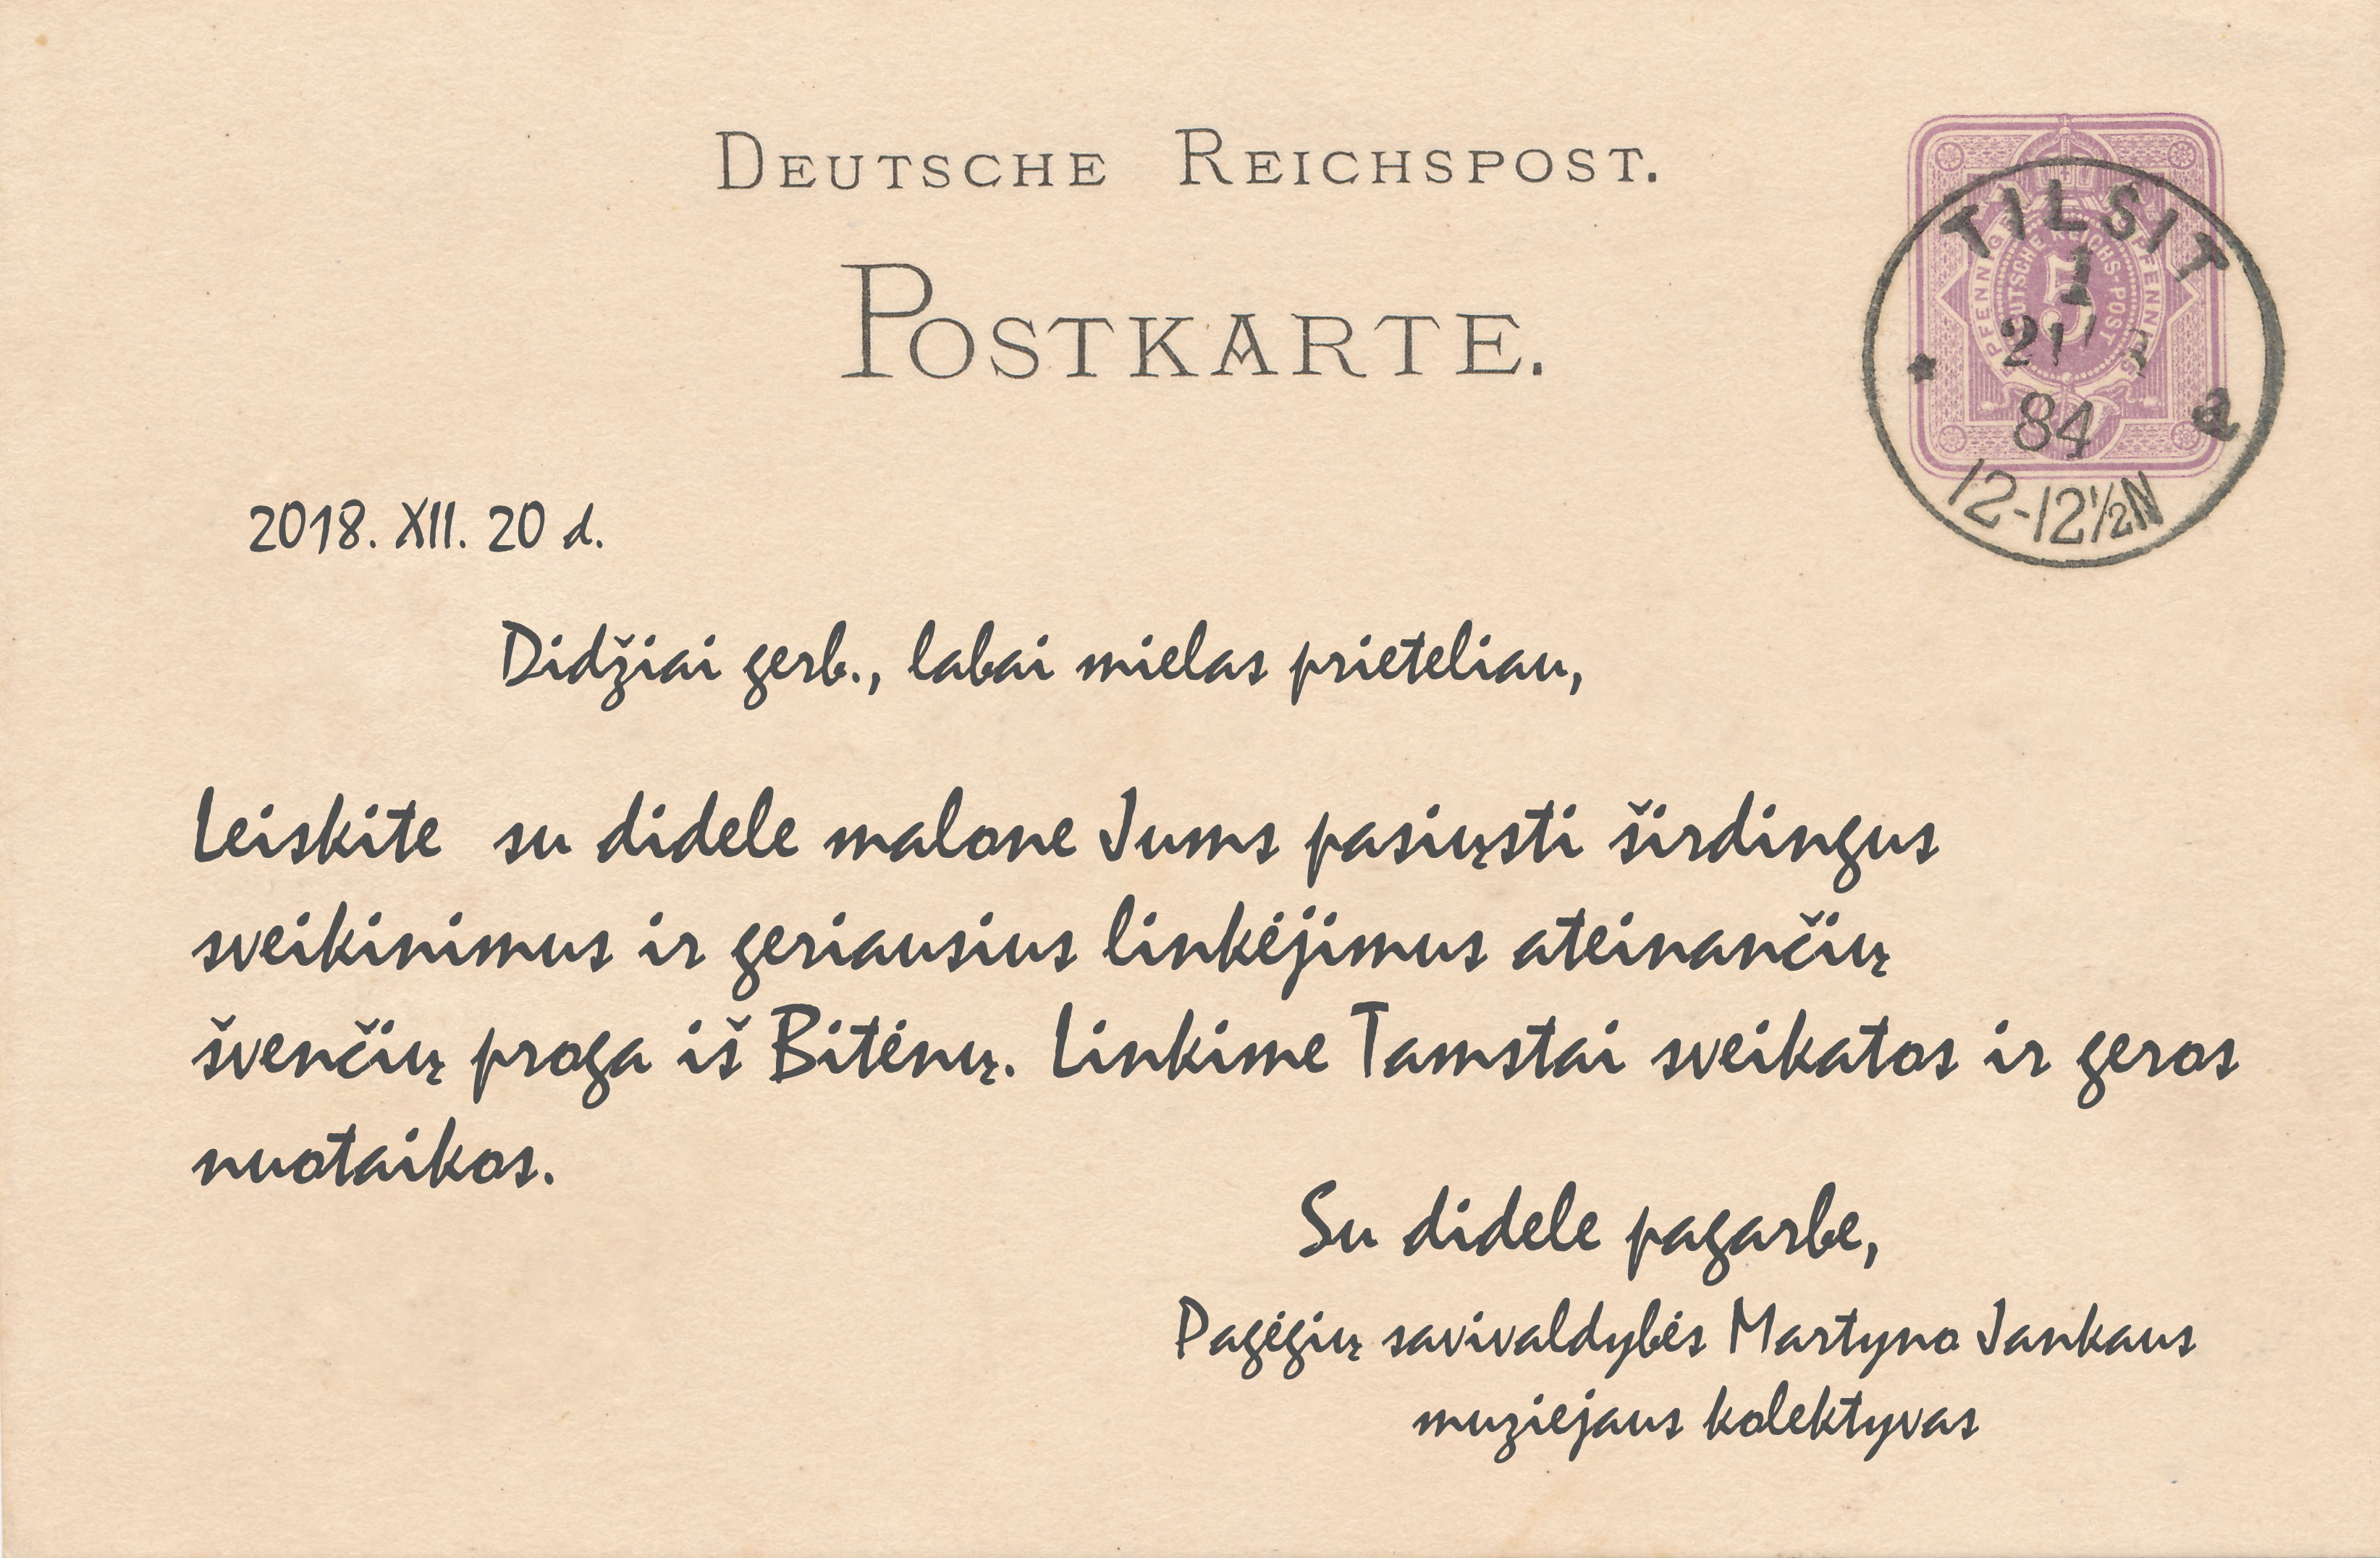 DEUTSCHE REICHSPOST.
POSTKARTE.
TILSIT
1
84
a
12-12½N
5
DEUTSCHE REICHS-POST
PFENNIG
2018. XII. 20 d.
Didžiai gerb., labai mielas prieteliau,
Leiskite su didele malone Jums pasiųsti širdingus
sveikinimus ir geriausius linkėjimus ateinančių
švenčių proga iš Bitėnų. Linkime Tamstai sveikatos ir geros
nuotaikos.
Su didele pagarbe,
Pagėgių savivaldybės Martyno Jankaus
muziejaus kolektyvas